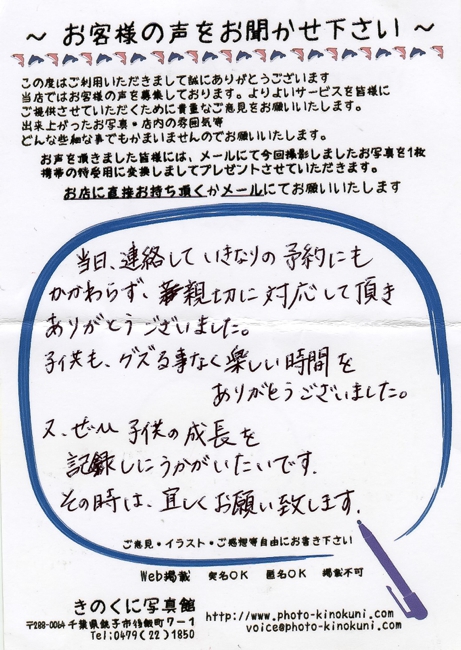 ～ お客様の声をお聞かせ下さい ～
この度はご利用いただきまして誠にありがとうございます
当店ではお客様の声を募集しております。よりよいサービスを皆様に
ご提供させていただくために貴重なご意見をお願いいたします。
出来上がったお写真・店内の雰囲気等
どんな些細な事でもかまいませんのでお願いいたします。
お声を頂きました皆様には、メールにて今回撮影しましたお写真を1枚
携帯の待受用に変換しましてプレゼントさせていただきます。
お店に直接お持ち頂くかメールにてお願いいたします
当日、連絡していきなりの予約にも
かかわらず、親切に対応して頂き
ありがとうございました。
子供も、グズる事なく楽しい時間を
ありがとうございました。
又、ぜひ子供の成長を
記録しにうかがいたいです.
その時は、宜しくお願い致します.
ご意見・イラスト・ご感想等自由にお書き下さい
Web掲載 実名OK 匿名OK 掲載不可
きのくに写真館
〒288-0064 千葉県銚子市待飯町7－1
Tel:0479(22)1850
http://www.photo-kinokuni.com/
voice@photo-kinokuni.com